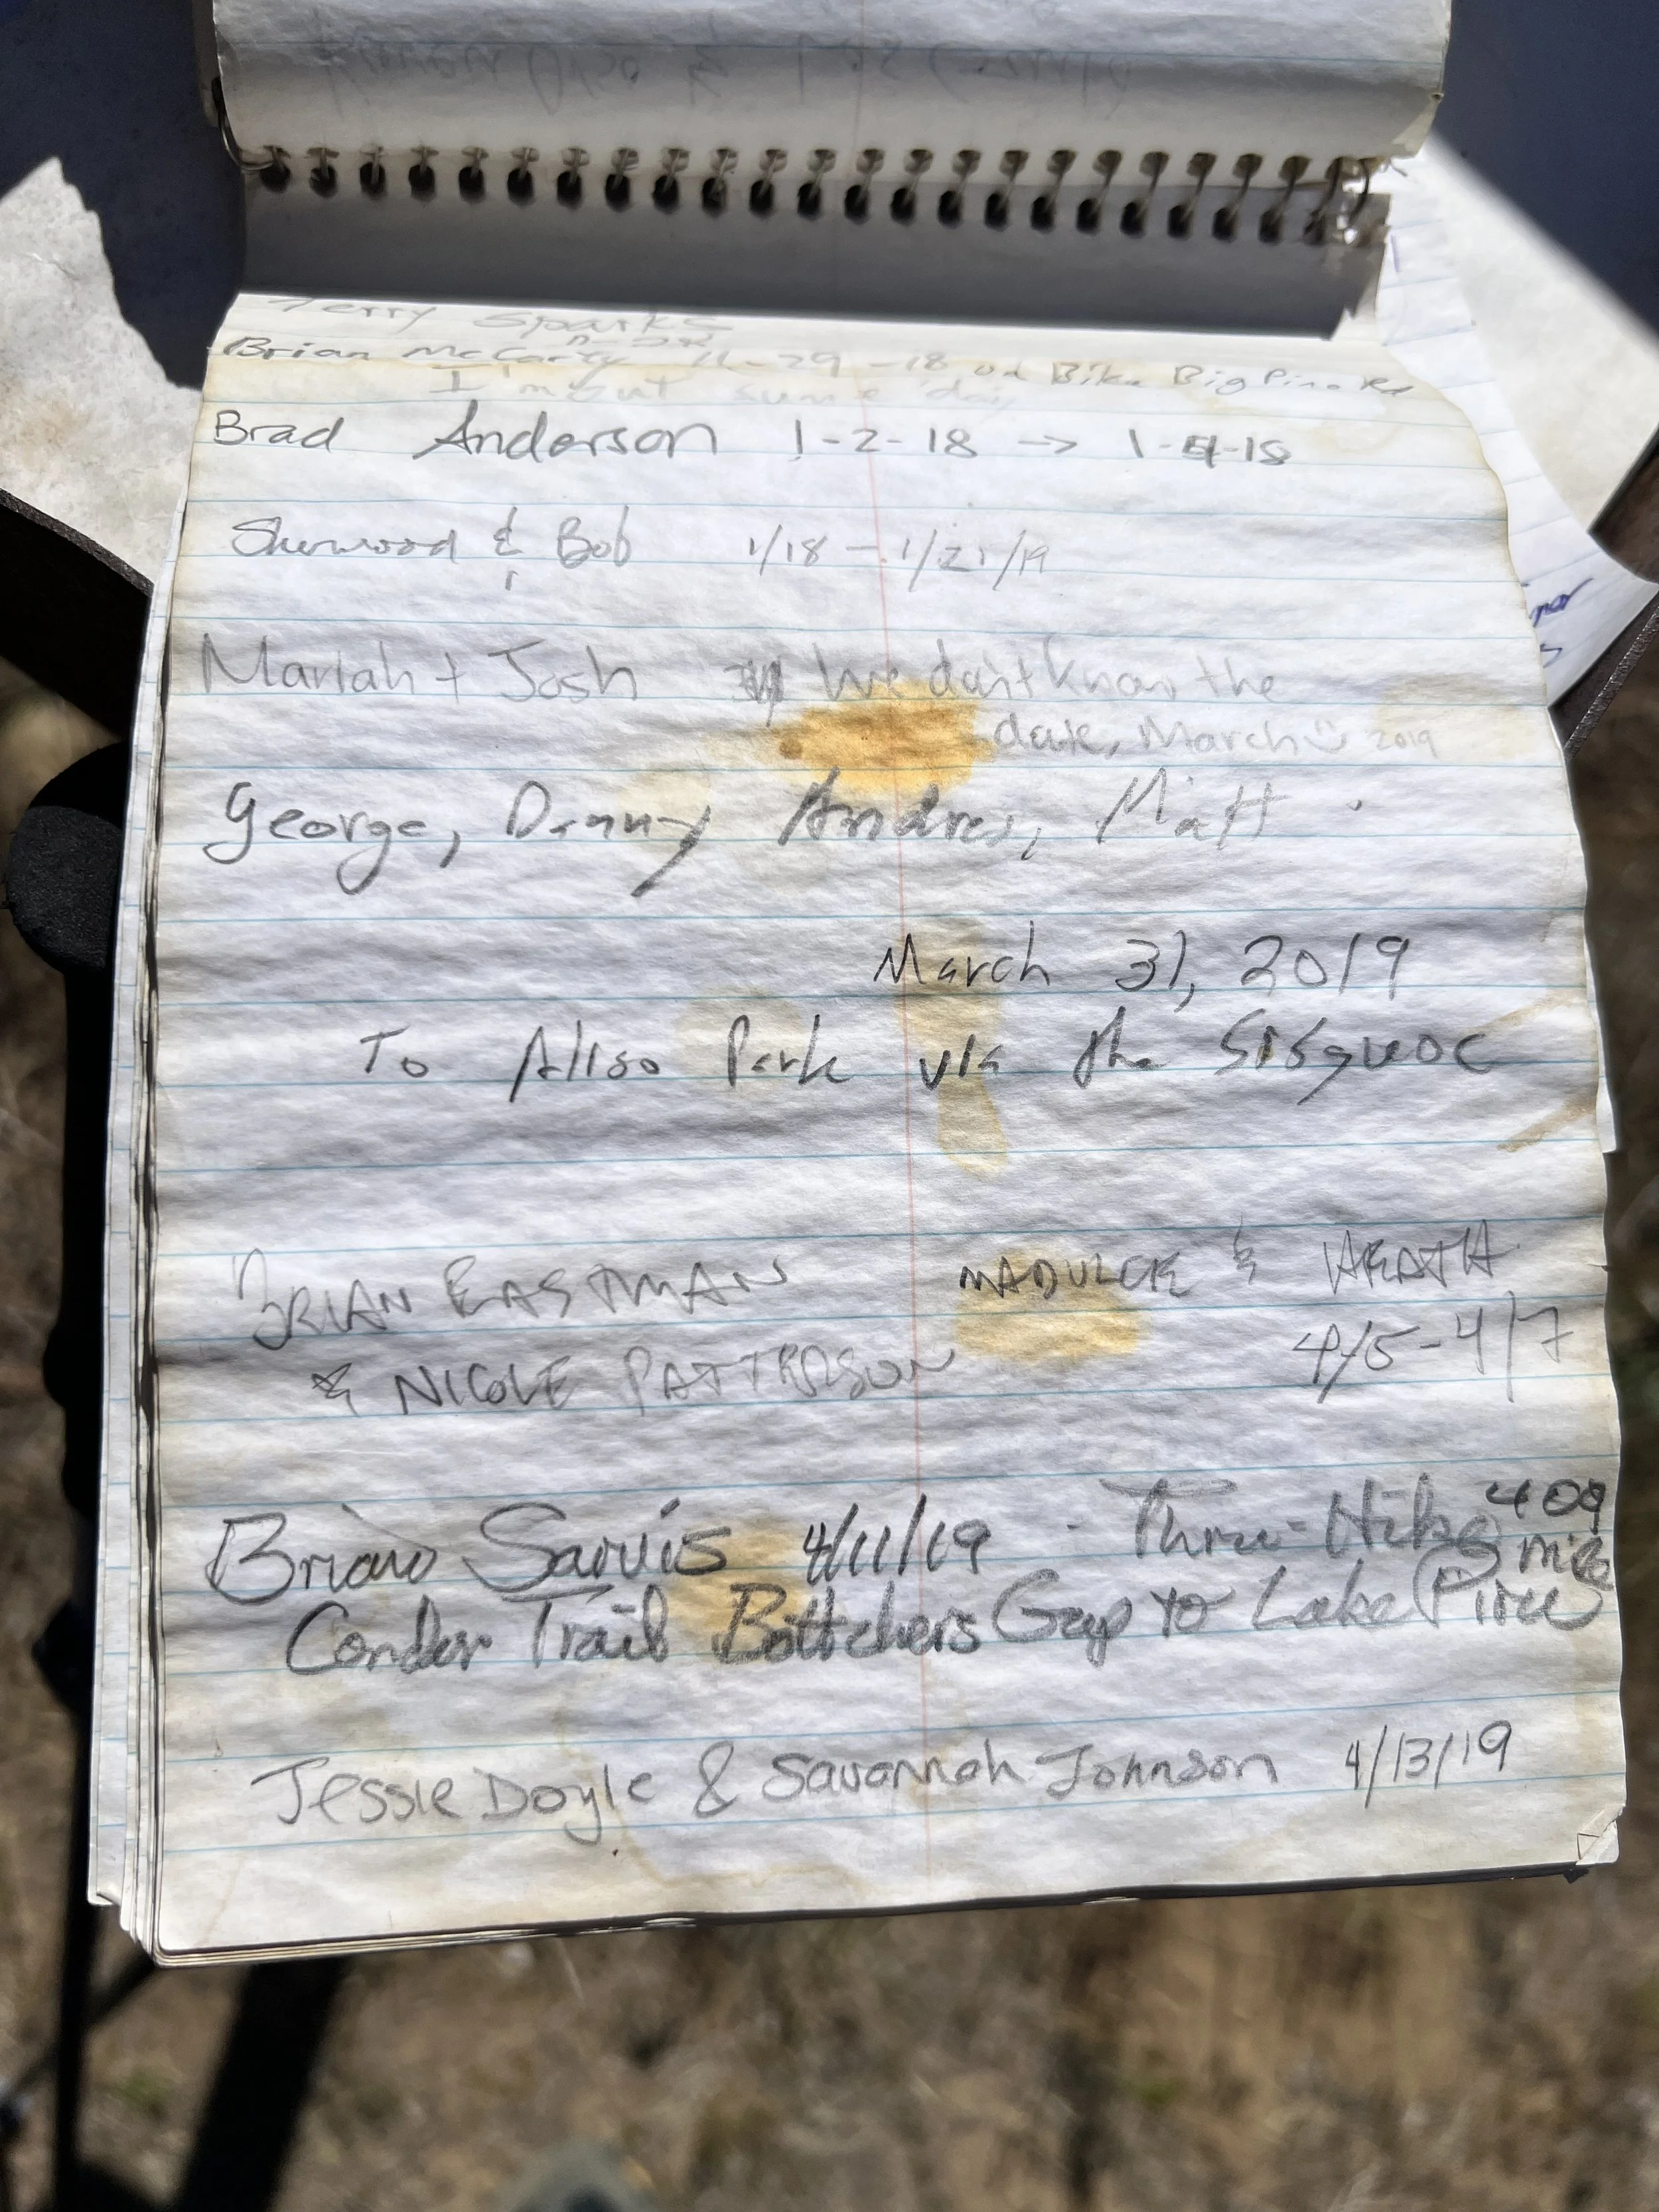 Terry Sparks
Brian McCarty 11-29-18 on Bike Big Pine Rd
I'm out some day
Brad Anderson 1-2-18 → 1-4-18
Sherwood & Bob 1/18 - 1/21/19
Mariah + Josh We don't know the
date, March 2019
George, Danny Andres, Matt
March 31, 2019
To Aliso Park via the Sisquoc
BRIAN EASTMAN MADULCE & HEATH
& NICOLE PATTERSON 4/5-4/7
Brian Sarvis 4/11/19 - Thru-Hike 409
miles
Condor Trail Bottchers Gap to Lake Piru
Jessie Doyle & Savannah Johnson 4/13/19